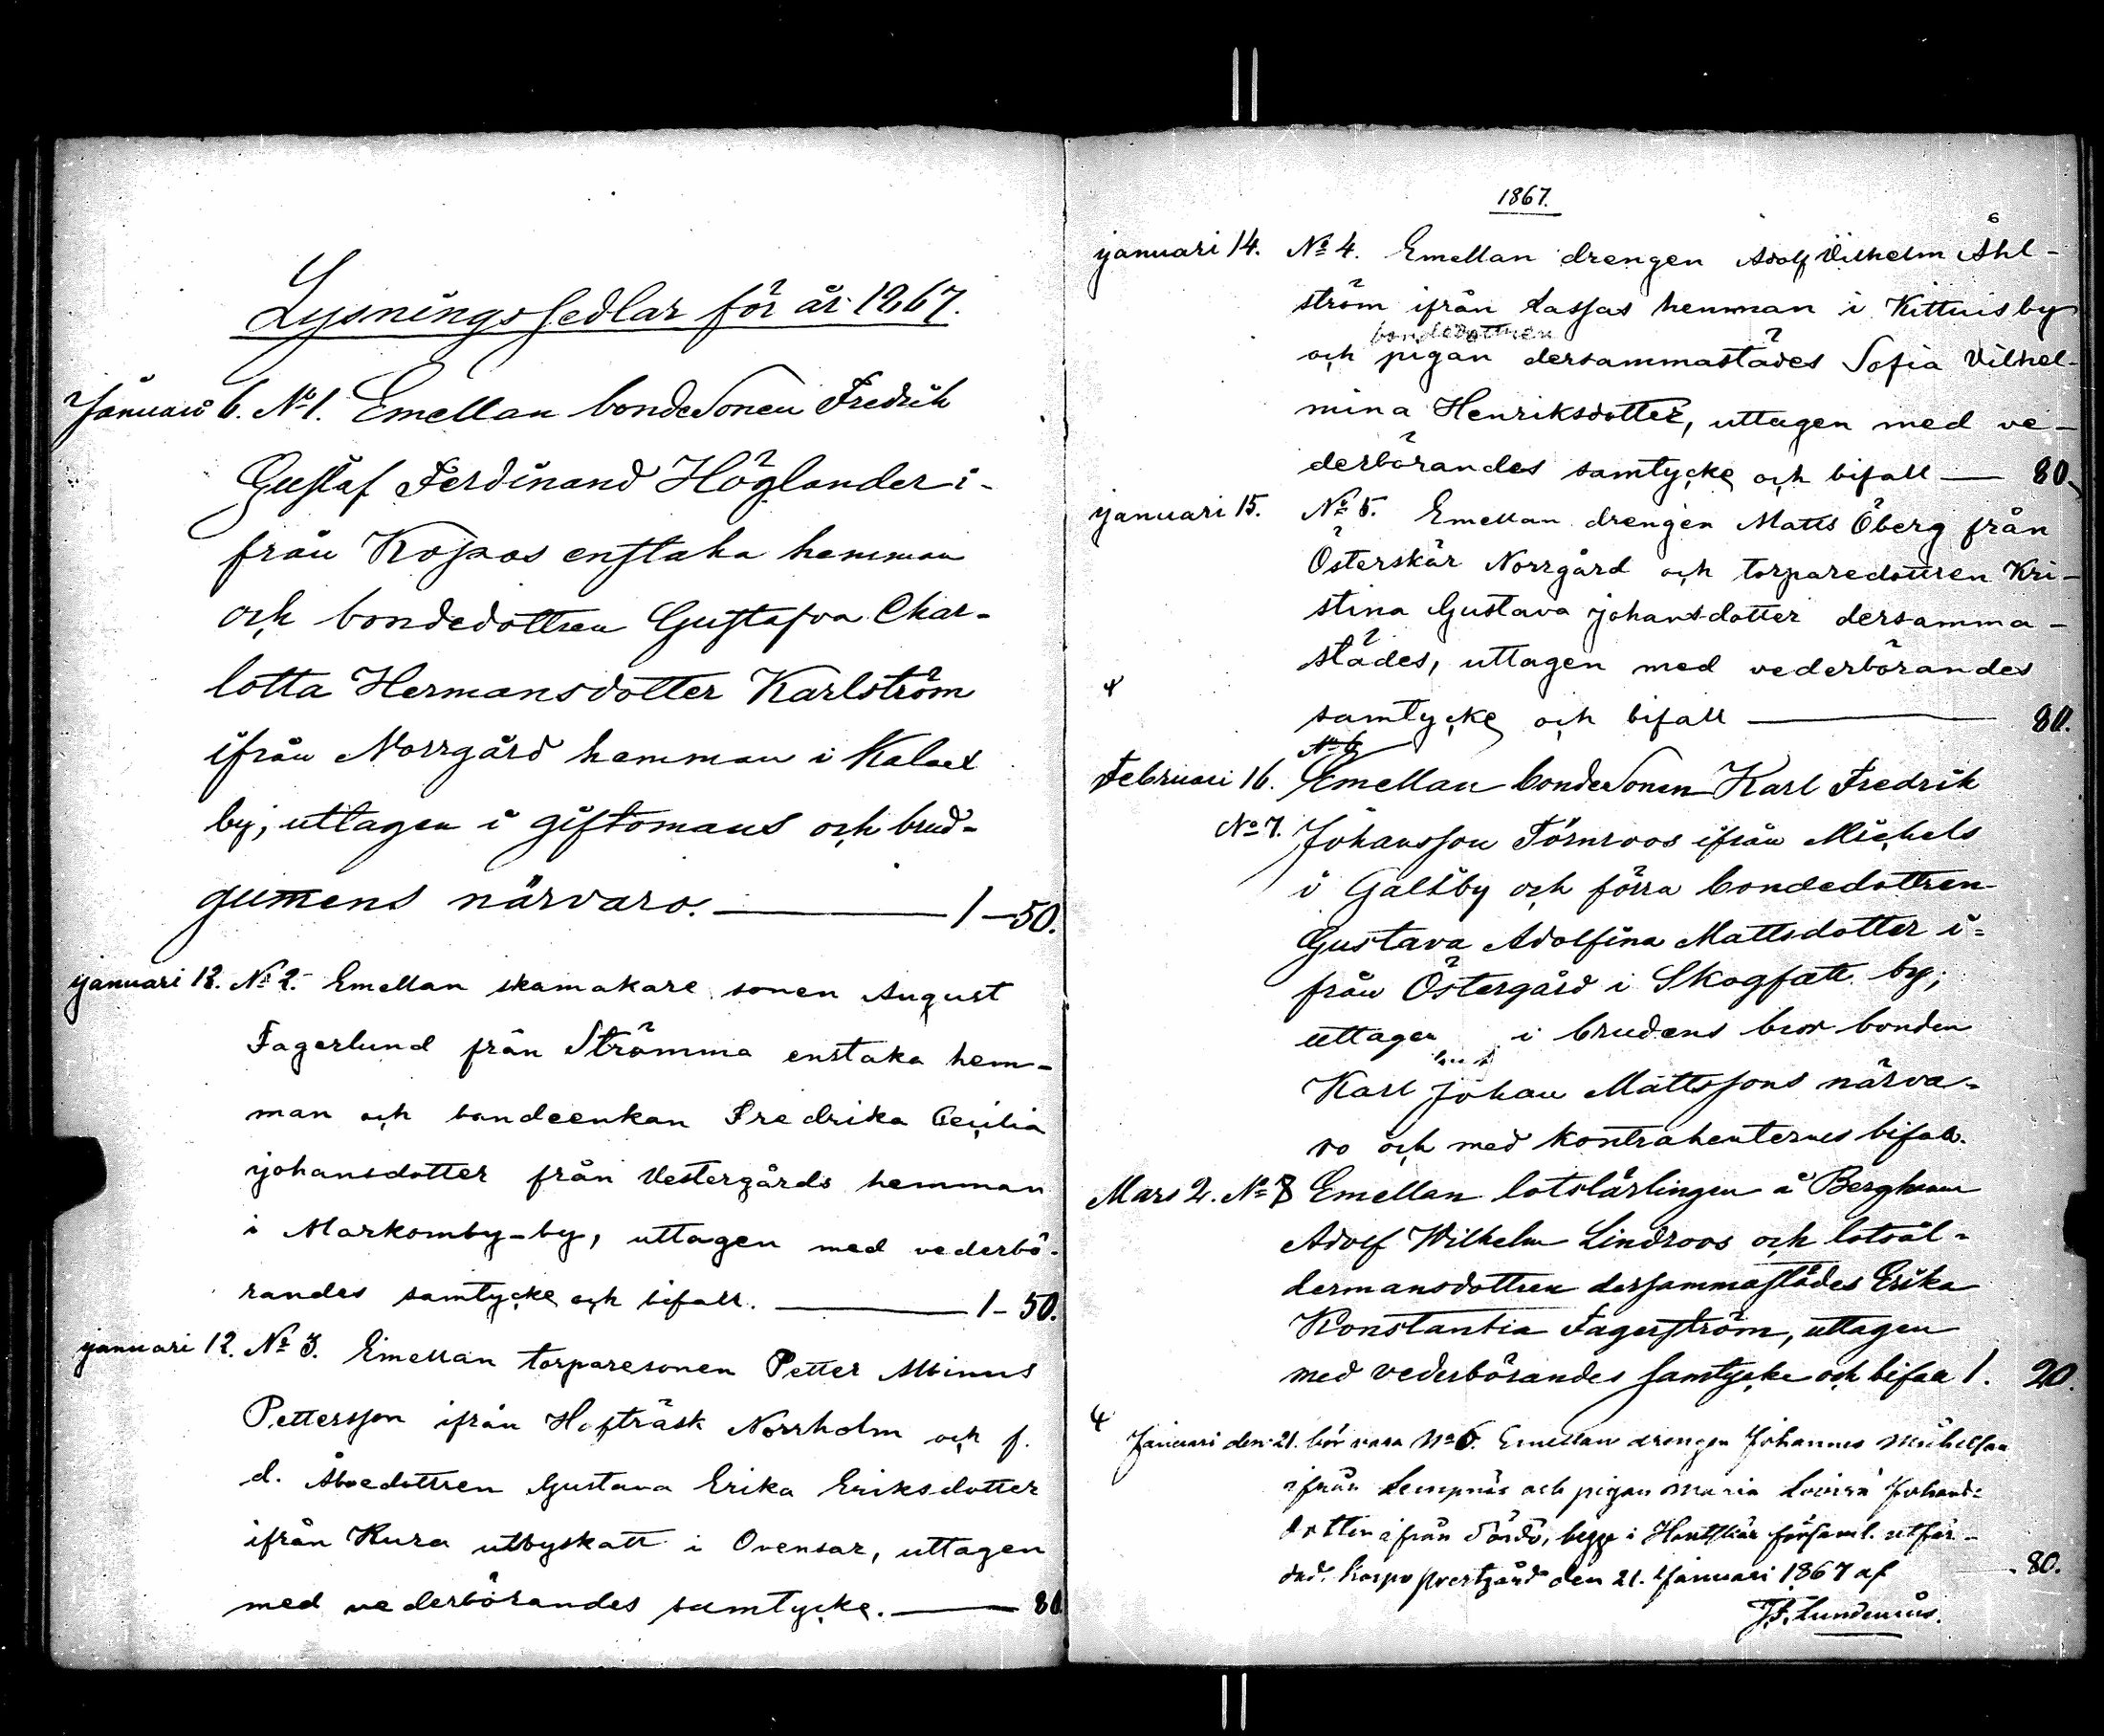 Lysningssedlar för år 1867.
Januari 6. No 1. Emellan bondesonen Fredrik
Gustaf Ferdinand Höglander i-
från Kopos enstaka hemman
och bondedottren Gustafva Char-
lotta Hermansdotter Karlström
ifrån Norrgård hemman i Kalax
by, uttagen i giftomans och brud-
gumens närvaro. — 1-50.
januari 12. No 2. Emellan skomakare sonen August
Fagerlund från Strömma enstaka hem-
man och bondeenkan Fredrika Cecilia
johansdotter från Vestergårds hemman
i Markomby-by, uttagen med vederbö-
randes samtycke och bifall. — 1-50.
januari 12. No 3. Emellan torparesonen Petter Albinus
Pettersson ifrån Hofträsk Norrholm och f.
d. Åboedottren Gustava Erika Eriksdotter
ifrån Kura utbyskatt i Ovensar, uttagen
med vederbörandes samtycke. — 80
1867.
6
januari 14. No 4. Emellan drengen Adolf Vilhelm Åhl-
ström ifrån Lassas hemman i Kittuis by
bondedottren
och pigan dersammastädes Sofia Vilhel-
mina Henriksdotter, uttagen med ve-
derbörandes samtycke och bifall — 80.
januari 15. No 5. Emellan drengen Matts Öberg från
Österskär Norrgård och torparedottren Kri-
stina Gustava johansdotter dersamma-
städes, uttagen med vederbörandes
samtycke och bifall — 80.
No 6
Februari 16. Emellan bondesonen Karl Fredrik
No 7. Johansson Törnroos ifrån Michels
i Galtby och förra bondedottren
Gustava Adolfina Mattsdotter i=
från Östergård i Skogfatt by;
uttagen i brudens bror bonden
Karl Johan Mattssons närva-
ro och med kontrahenternes bifall.
Mars 2. No 8 Emellan lotslärlingen å Berghamn
Adolf Wilhelm Lindroos och lotsål-
dermansdottren dersammastädes Erika
Konstantia Fagerström, uttagen
med vederbörandes samtycke och bifall 1. 20.
Januari den 21. bör vara No 6. Emellan drengen Johannes Michelsson
ifrån Lempnäs och pigan Maria Lovisa Johans=
dotter ifrån Sördö, begge i Houtskär församl. utfär-
dad. Korpo prestgård den 21. Januari 1867 af — 80.
J. F. Lundenius.